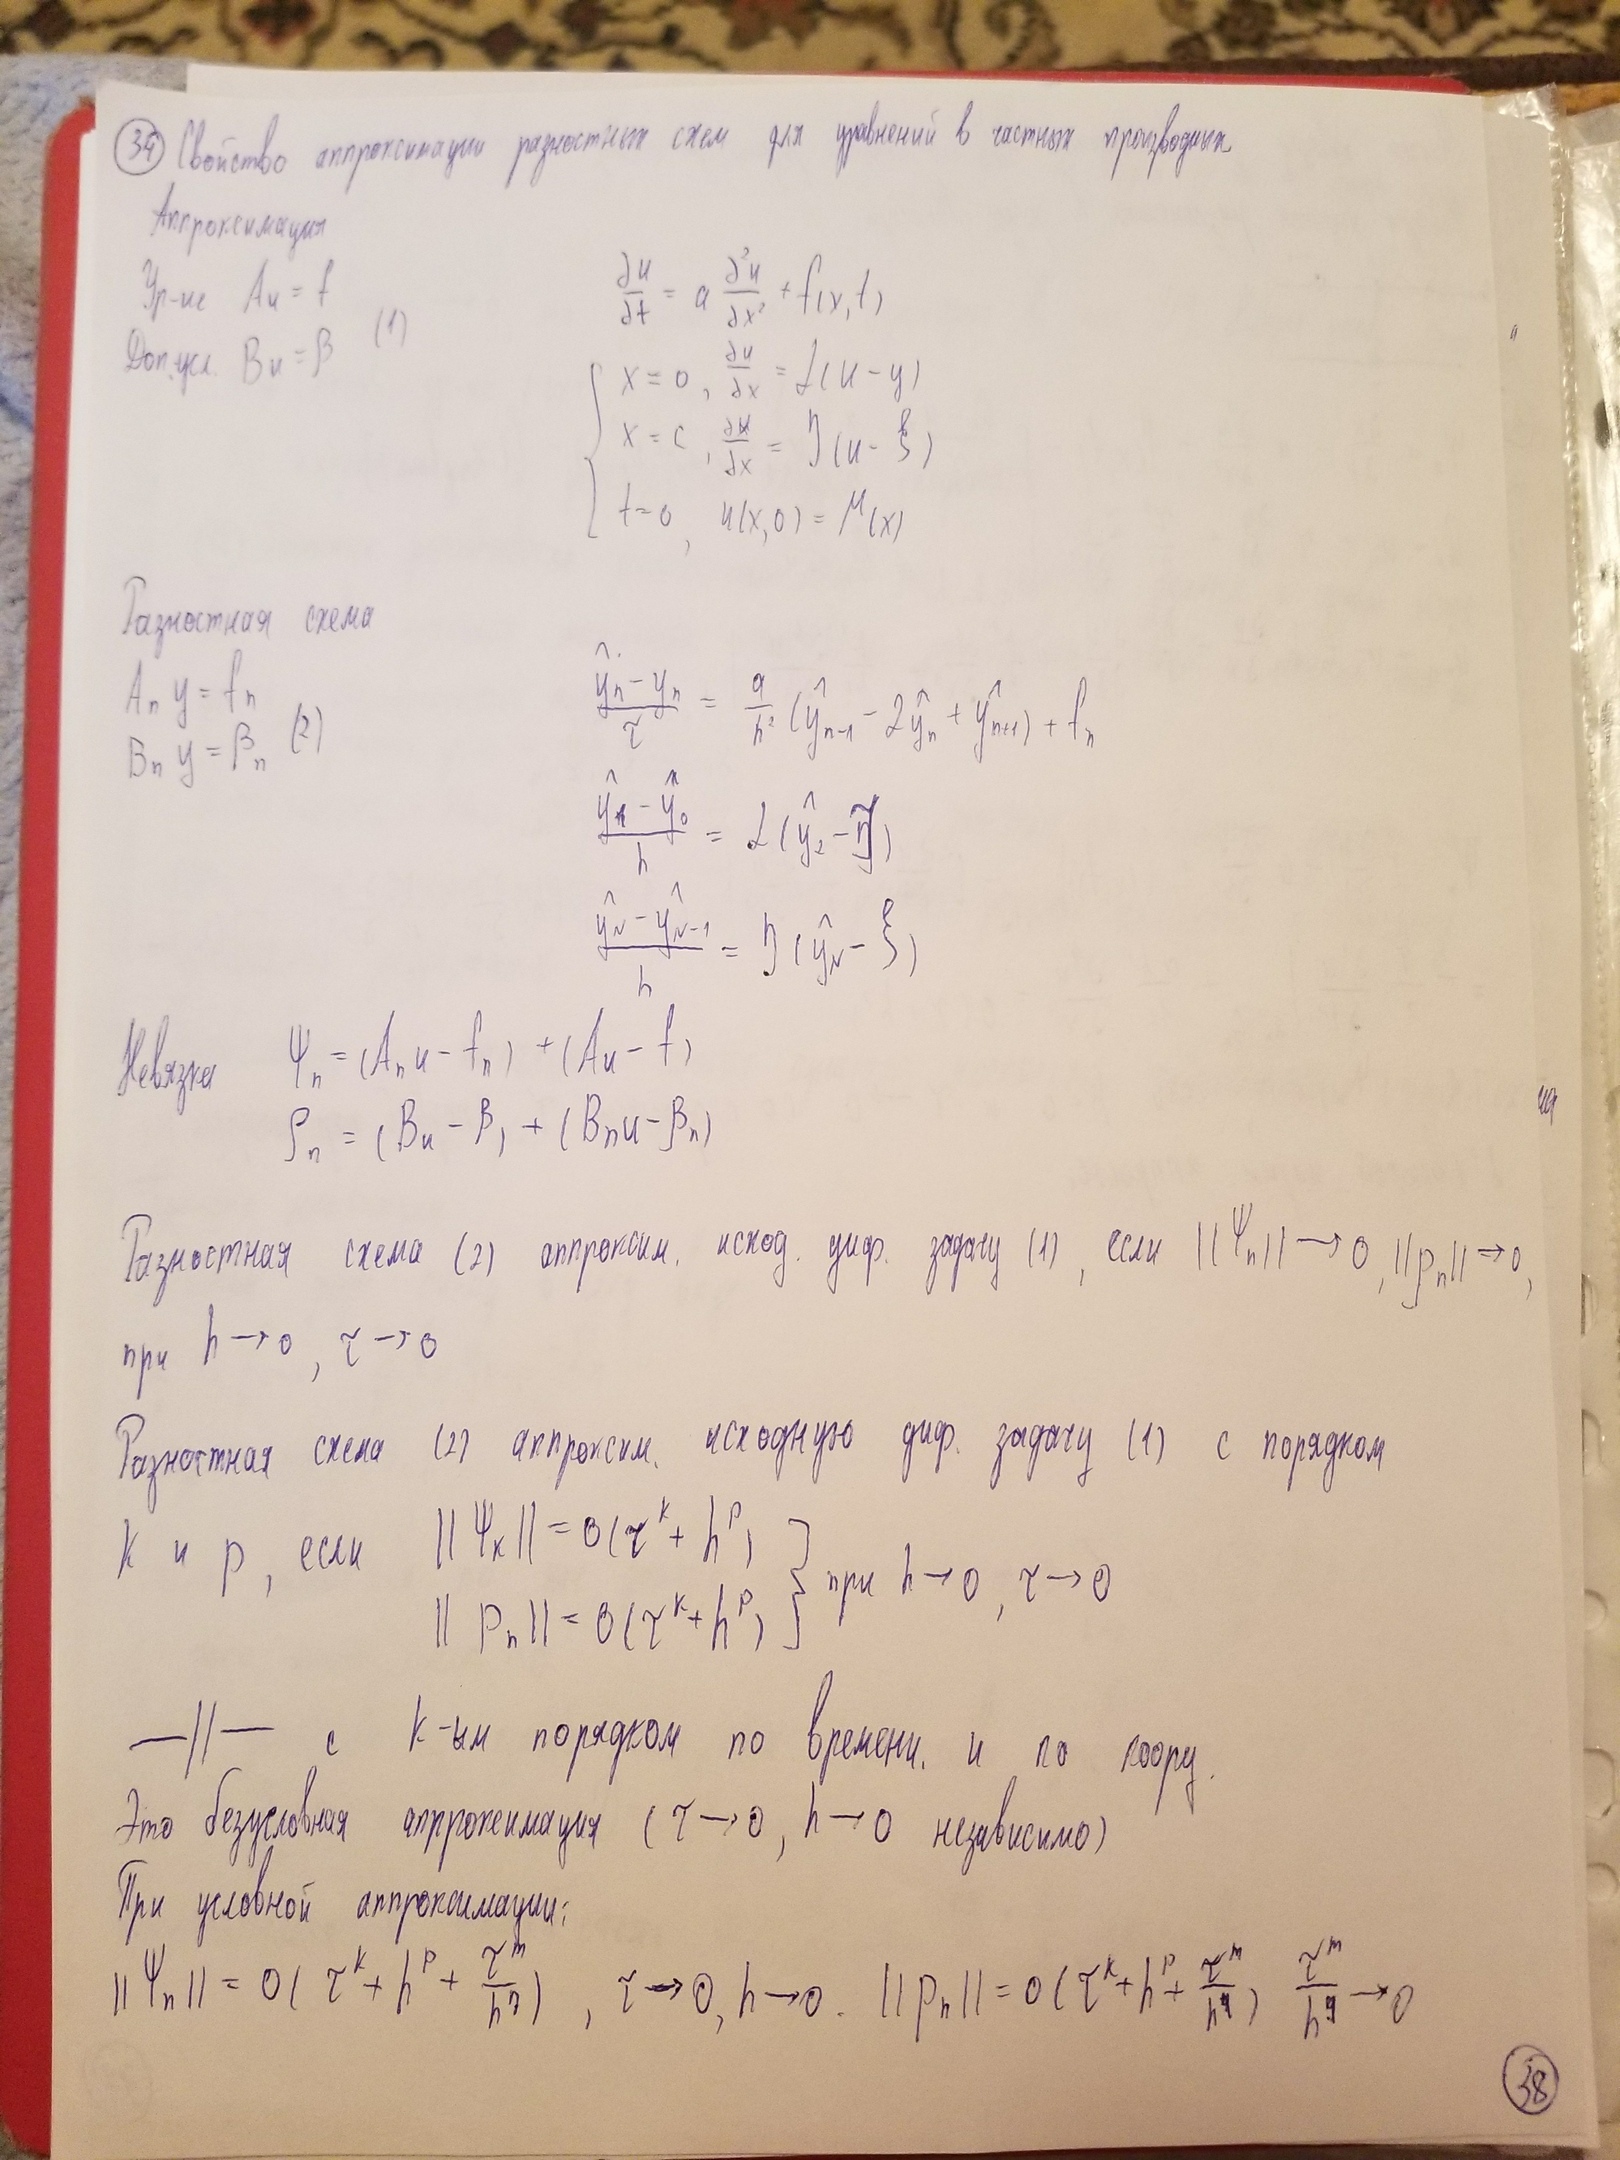 34 Свойство аппроксимации разностных схем для уравнений в частных производных
Аппроксимация
Ур-ие Au = f
Доп.усл. Bu = β (1)
∂u/∂t = a ∂²u/∂x² + f(x,t)
x = 0, ∂u/∂x = α(u - y)
x = c, ∂u/∂x = η(u - ξ)
t = 0, u(x,0) = μ(x)
Разностная схема
Aₙ y = fₙ
Bₙ y = βₙ (2)
(ŷₙ - yₙ)/τ = a/h² (ŷₙ₋₁ - 2ŷₙ + ŷₙ₊₁) + fₙ
(ŷ₁ - ŷ₀)/h = α(ŷ₂ - )
(ŷ_N - ŷ_N-1)/h = η(ŷ_N - ξ)
Невязка ψₙ = (Aₙu - fₙ) + (Au - f)
ρₙ = (Bu - β) + (Bₙu - βₙ)
Разностная схема (2) аппроксим. исход. диф. задачу (1), если ||ψₙ|| → 0, ||ρₙ|| → 0,
при h → 0, τ → 0
Разностная схема (2) аппроксим. исходную диф. задачу (1) с порядком
k и p, если ||ψₖ|| = O(τᵏ + hᵖ)
||ρₙ|| = O(τᵏ + hᵖ) } при h → 0, τ → 0
—||— с k-ым порядком по времени. и по коорд.
Это безусловная аппроксимация (τ → 0, h → 0 независимо)
При условной аппроксимации:
||ψₙ|| = O(τᵏ + hᵖ + τᵐ/h^q), τ → 0, h → 0. ||ρₙ|| = O(τᵏ + hᵖ + τᵐ/h^q) τᵐ/h^q → 0
38